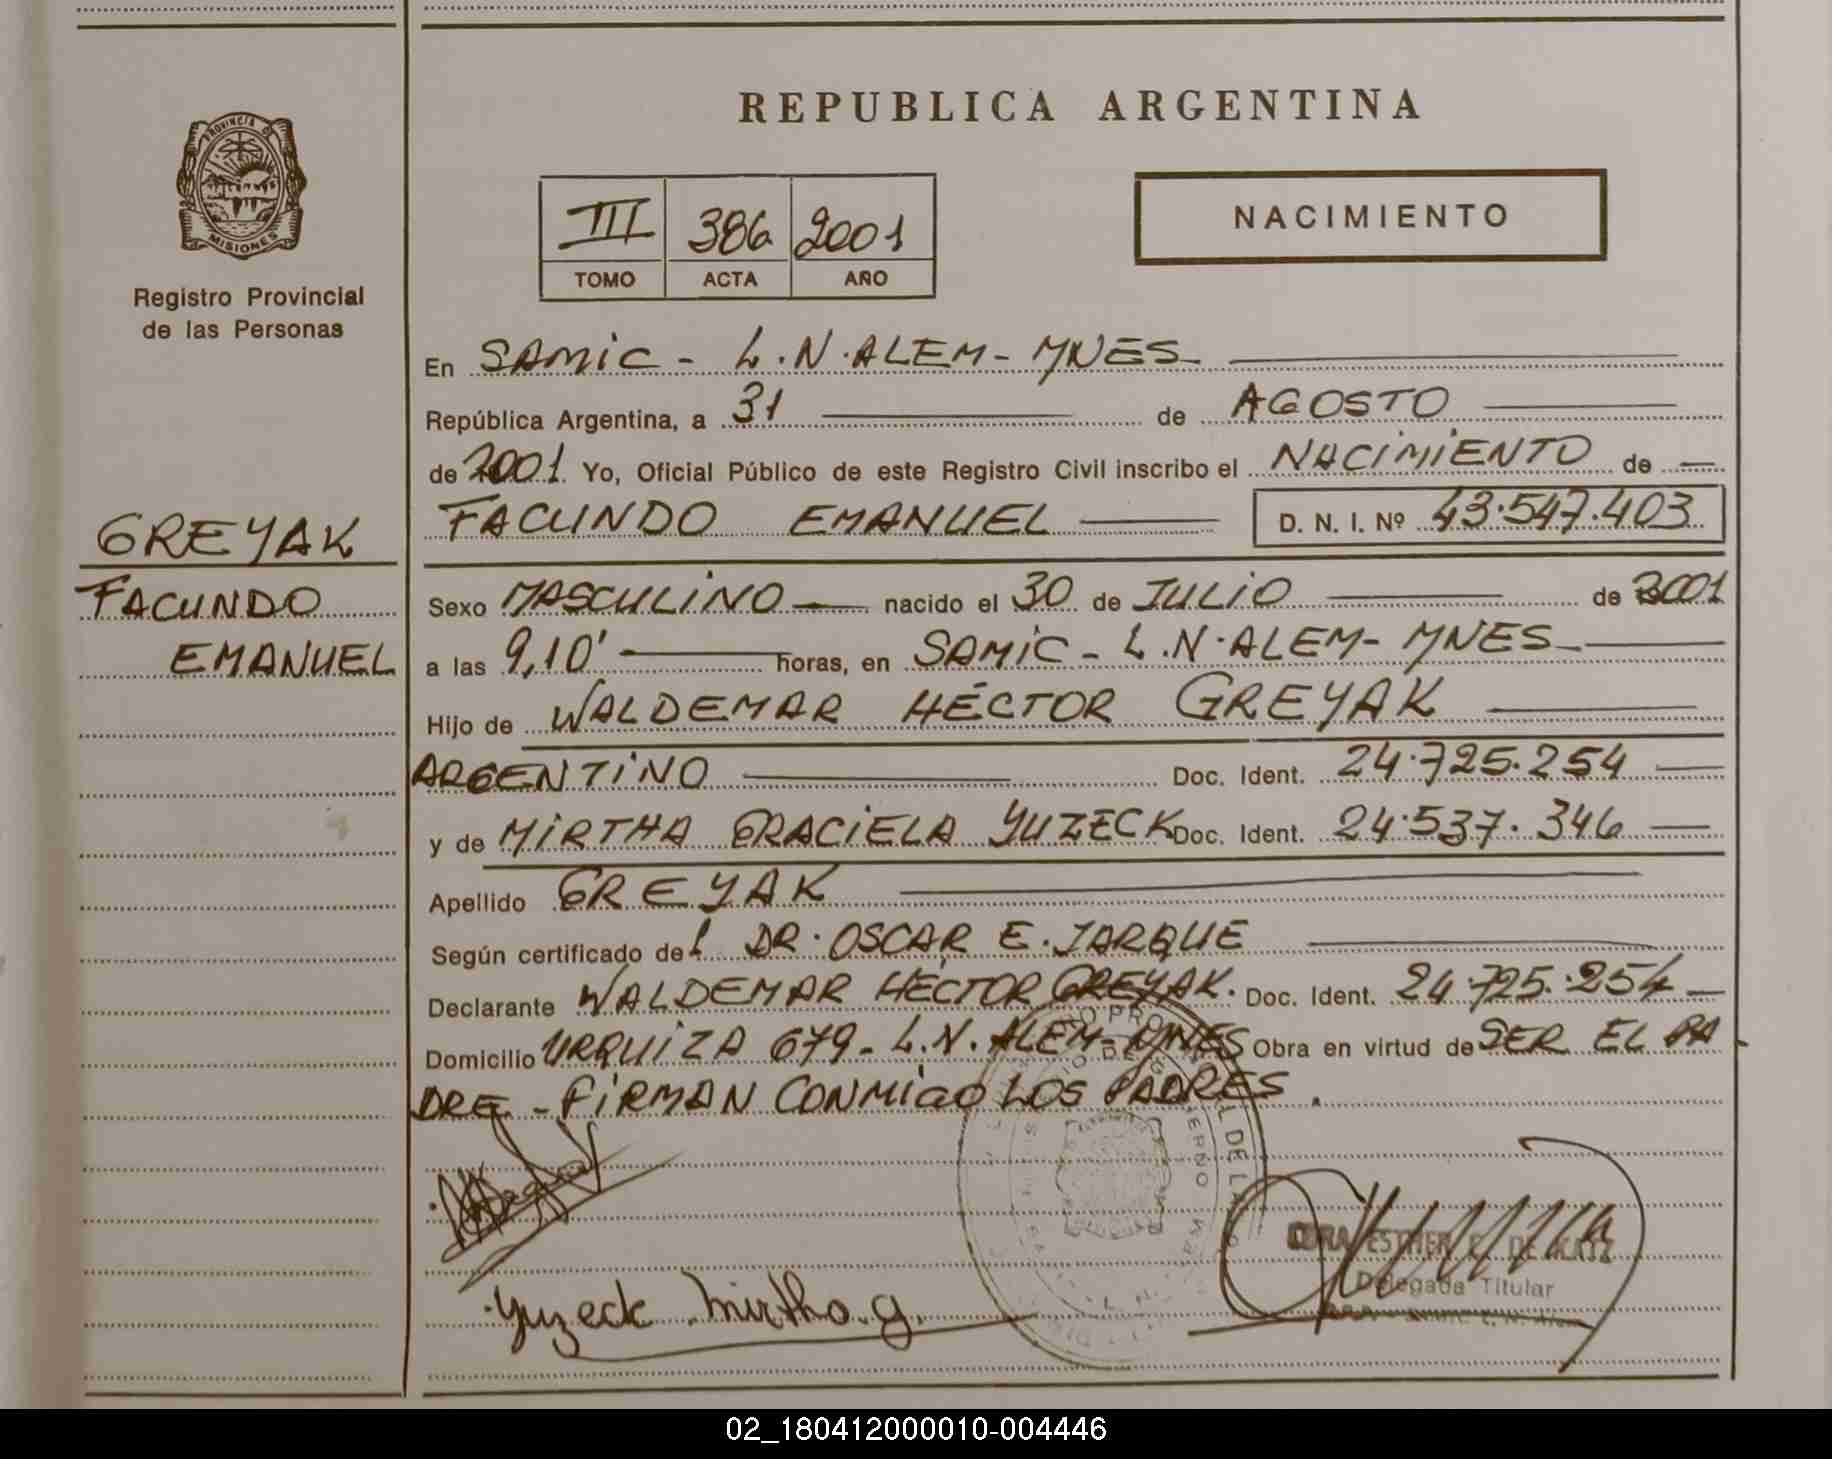 PROVINCIA DE
MISIONES
Registro Provincial
de las Personas
GREYAK
FACUNDO
EMANUEL
REPUBLICA ARGENTINA
III 386 2001
TOMO ACTA AÑO
NACIMIENTO
En SAMIC - L.N.ALEM - MNES
República Argentina, a 31 de AGOSTO
de 2001 Yo, Oficial Público de este Registro Civil inscribo el NACIMIENTO de
FACUNDO EMANUEL D. N. I. Nº 43.547.403
Sexo MASCULINO nacido el 30 de JULIO de 2001
a las 9,10' horas, en SAMIC - L.N.ALEM - MNES
Hijo de WALDEMAR HÉCTOR GREYAK
ARGENTINO Doc. Ident. 24.725.254
y de MIRTHA GRACIELA YUZECK Doc. Ident. 24.537.346
Apellido GREYAK
Según certificado del DR. OSCAR E. JARQUE
Declarante WALDEMAR HÉCTOR GREYAK. Doc. Ident. 24.725.254
Domicilio URQUIZA 679 - L.N. ALEM - MNES Obra en virtud de SER EL PA
DRE - FIRMAN CONMIGO LOS PADRES.
Yuzeck Mirtha.g.
ESTHER DE KATZ
Delegada Titular
02_180412000010-004446